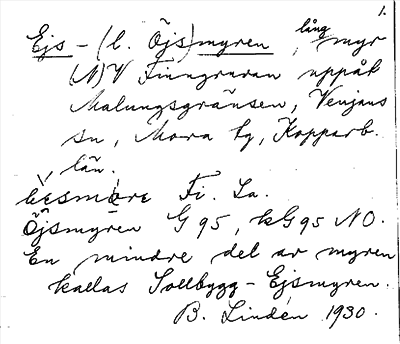 1.
Ejs-(l. Öjs)myren, lång myr
(N)V Finngruvan uppåt
Malungsgränsen, Venjans
sn, Mora tg, Kopparb.
län.
Fi. La.
Öjsmyren G 95, kG 95 NO.
En mindre del av myren
kallas Sollbygg-Ejsmyren.
B. Lindén 1930.